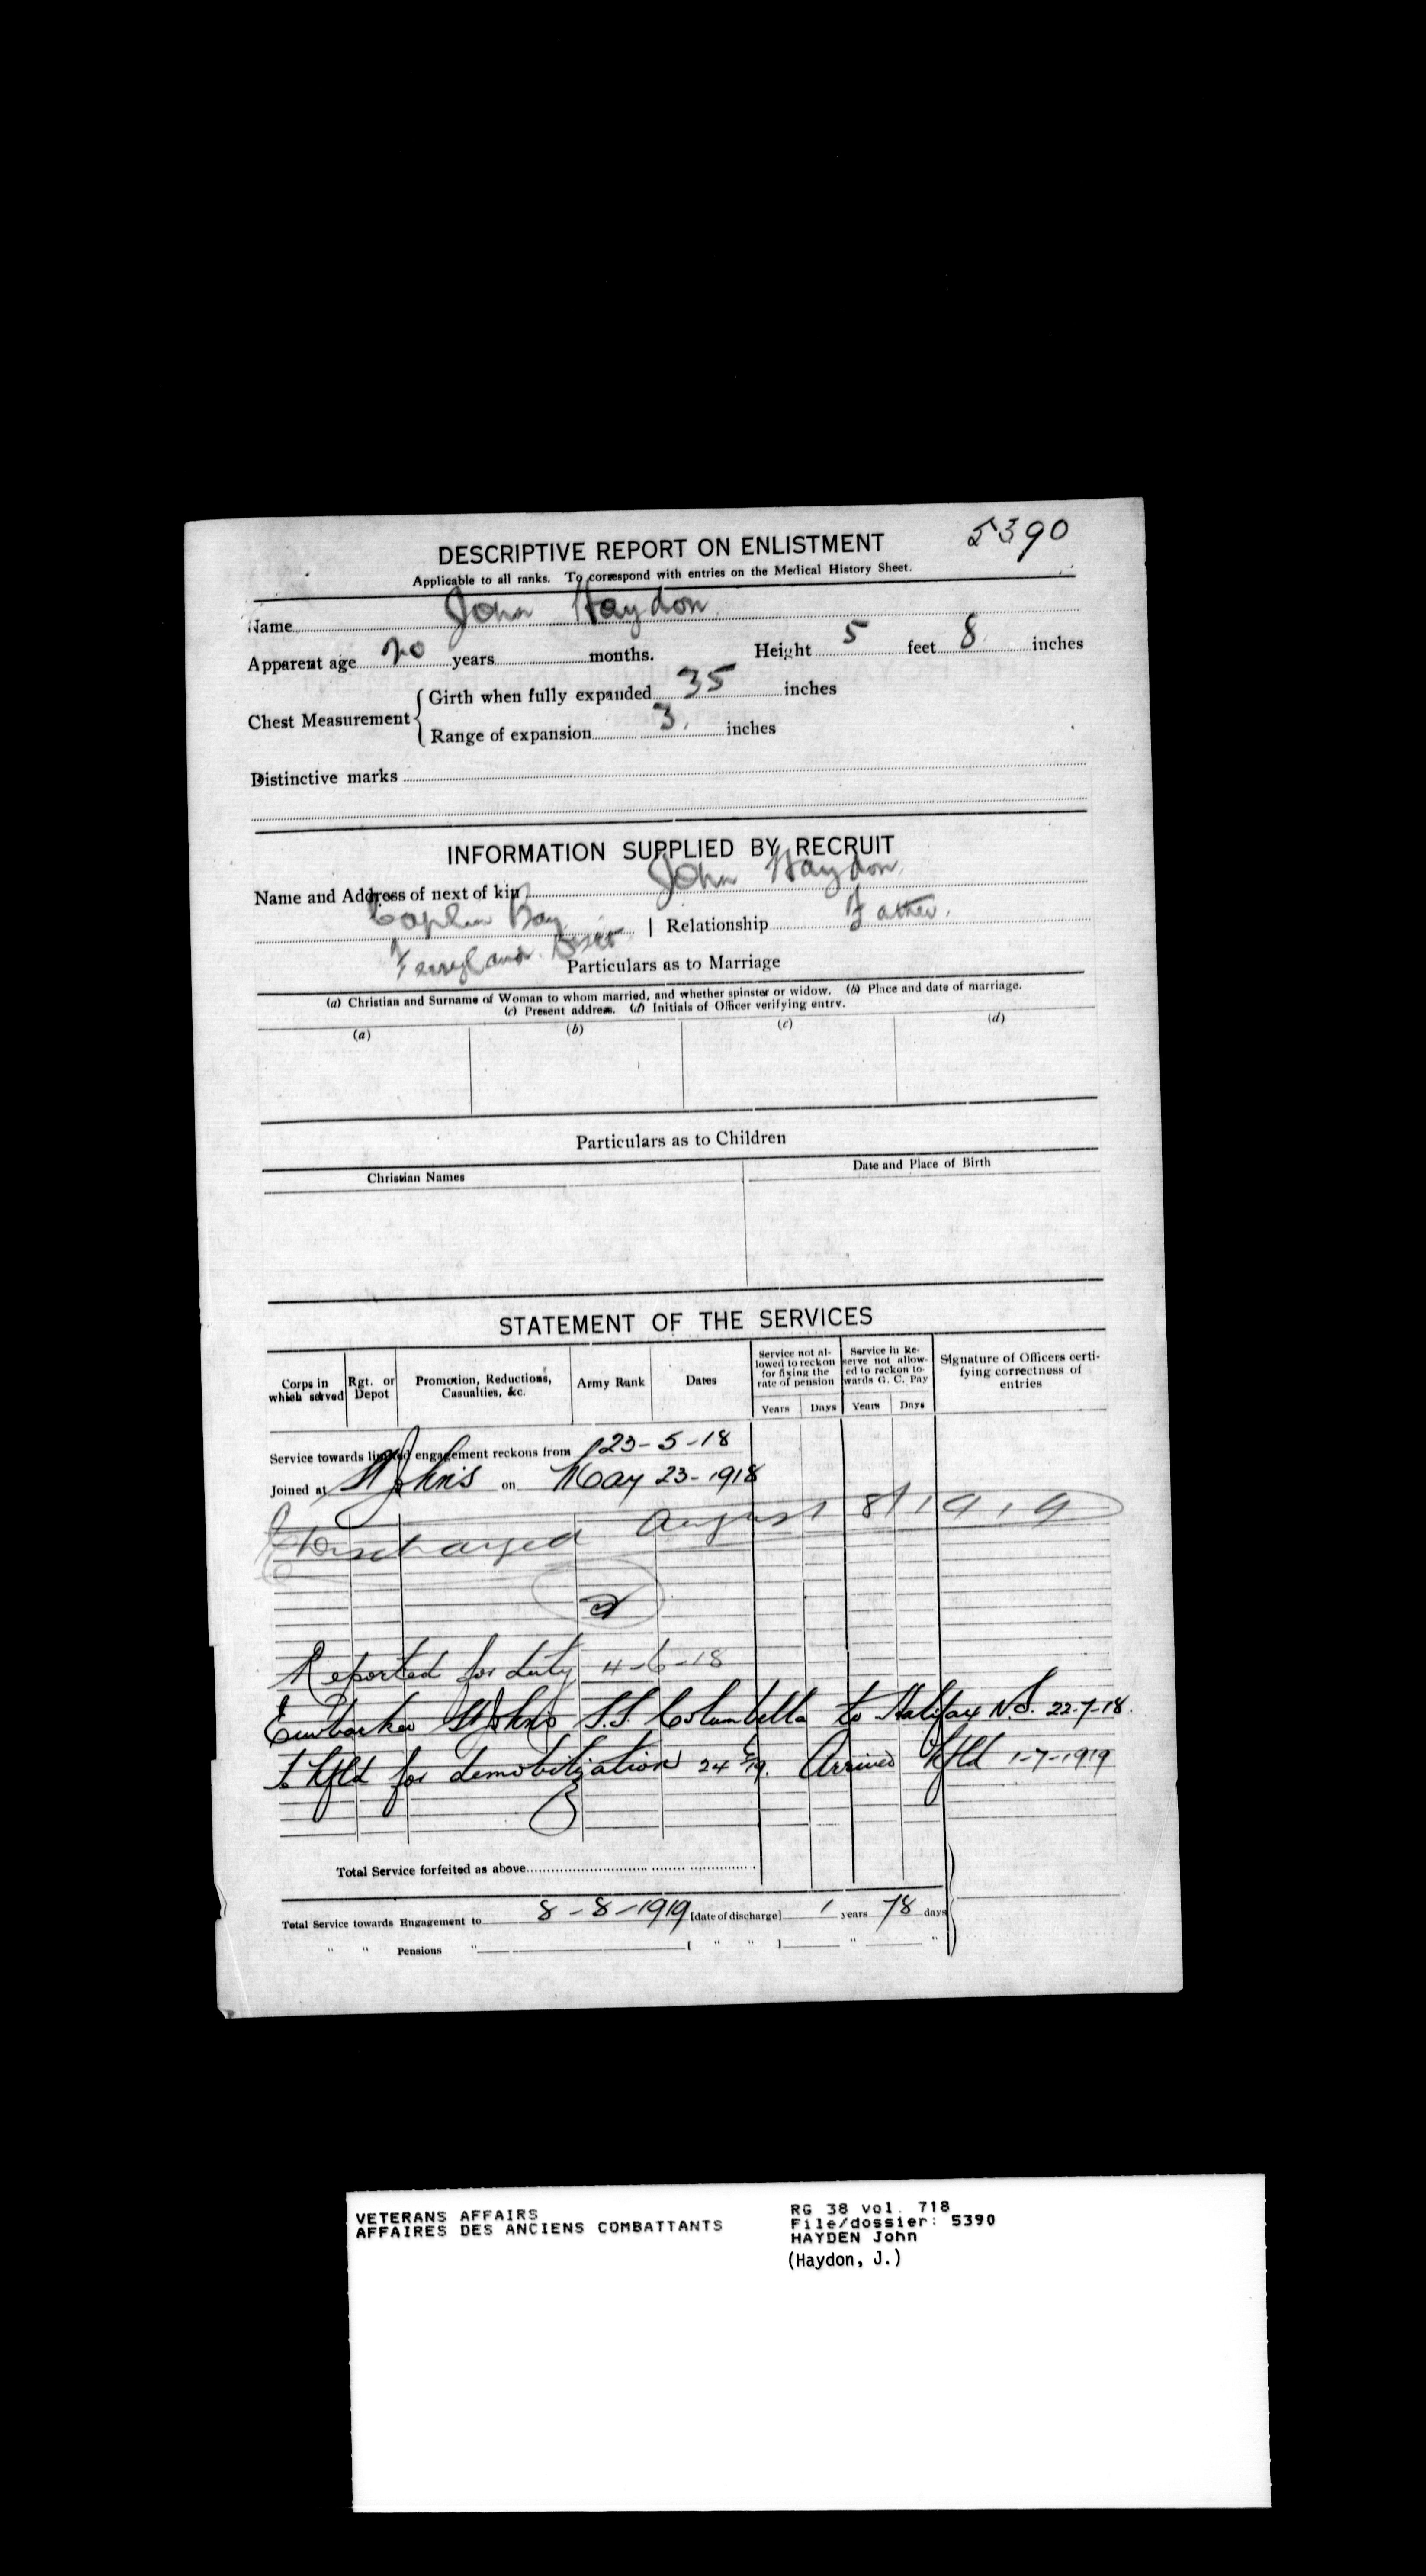 DESCRIPTIVE REPORT ON ENLISTMENT 5390
Applicable to all ranks. To correspond with entries on the Medical History Sheet.
Name John Haydon
Apparent age 20 years months. Height 5 feet 8 inches
Chest Measurement { Girth when fully expanded 35 inches
Range of expansion 3. inches
Distinctive marks
INFORMATION SUPPLIED BY RECRUIT
Name and Address of next of kin John Haydon
Caplin Bay | Relationship Father.
Ferryland Dist
Particulars as to Marriage
(a) Christian and Surname of Woman to whom married, and whether spinster or widow. (b) Place and date of marriage.
(c) Present address. (d) Initials of Officer verifying entry.
(a) (b) (c) (d)
Particulars as to Children
Christian Names Date and Place of Birth
STATEMENT OF THE SERVICES
Corps in which served Rgt. or Depot Promotion, Reductions, Casualties, &c. Army Rank Dates Service not allowed to reckon for fixing the rate of pension Service in Reserve not allowed to reckon towards G. C. Pay Signature of Officers certifying correctness of entries
Years Days Years Days
Service towards limited engagement reckons from 23-5-18
Joined at St Johns on May 23-1918
Discharged August 8/1919
Reported for duty 4-6-18
Embarked St Johns S.S. Columbella to Halifax N.S. 22-7-18.
To Nfld for demobilization 24 6/19. Arrived Nfld 1-7-1919
Total Service forfeited as above
Total Service towards Engagement to 8-8-1919 [date of discharge] 1 years 78 days
" " Pensions " [ " " ] " "
VETERANS AFFAIRS
AFFAIRES DES ANCIENS COMBATTANTS
RG 38 vol. 718
File/dossier: 5390
HAYDEN John
(Haydon, J.)